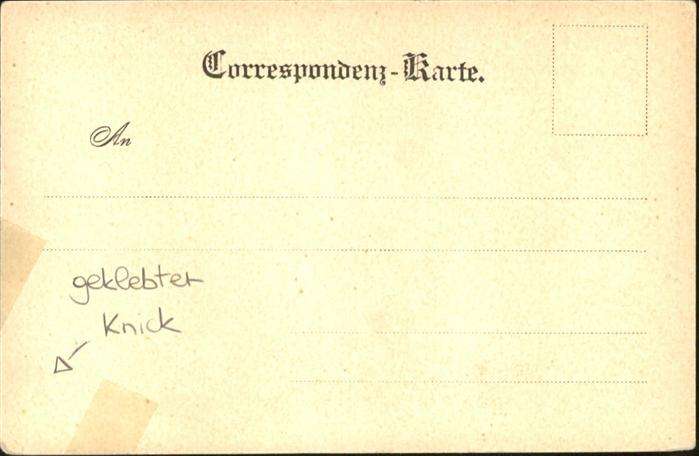 Correspondenz-Karte.
An
geklebter
Knick